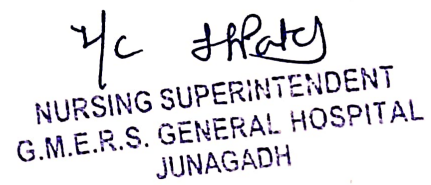 I/C
NURSING SUPERINTENDENT
G.M.E.R.S. GENERAL HOSPITAL
JUNAGADH